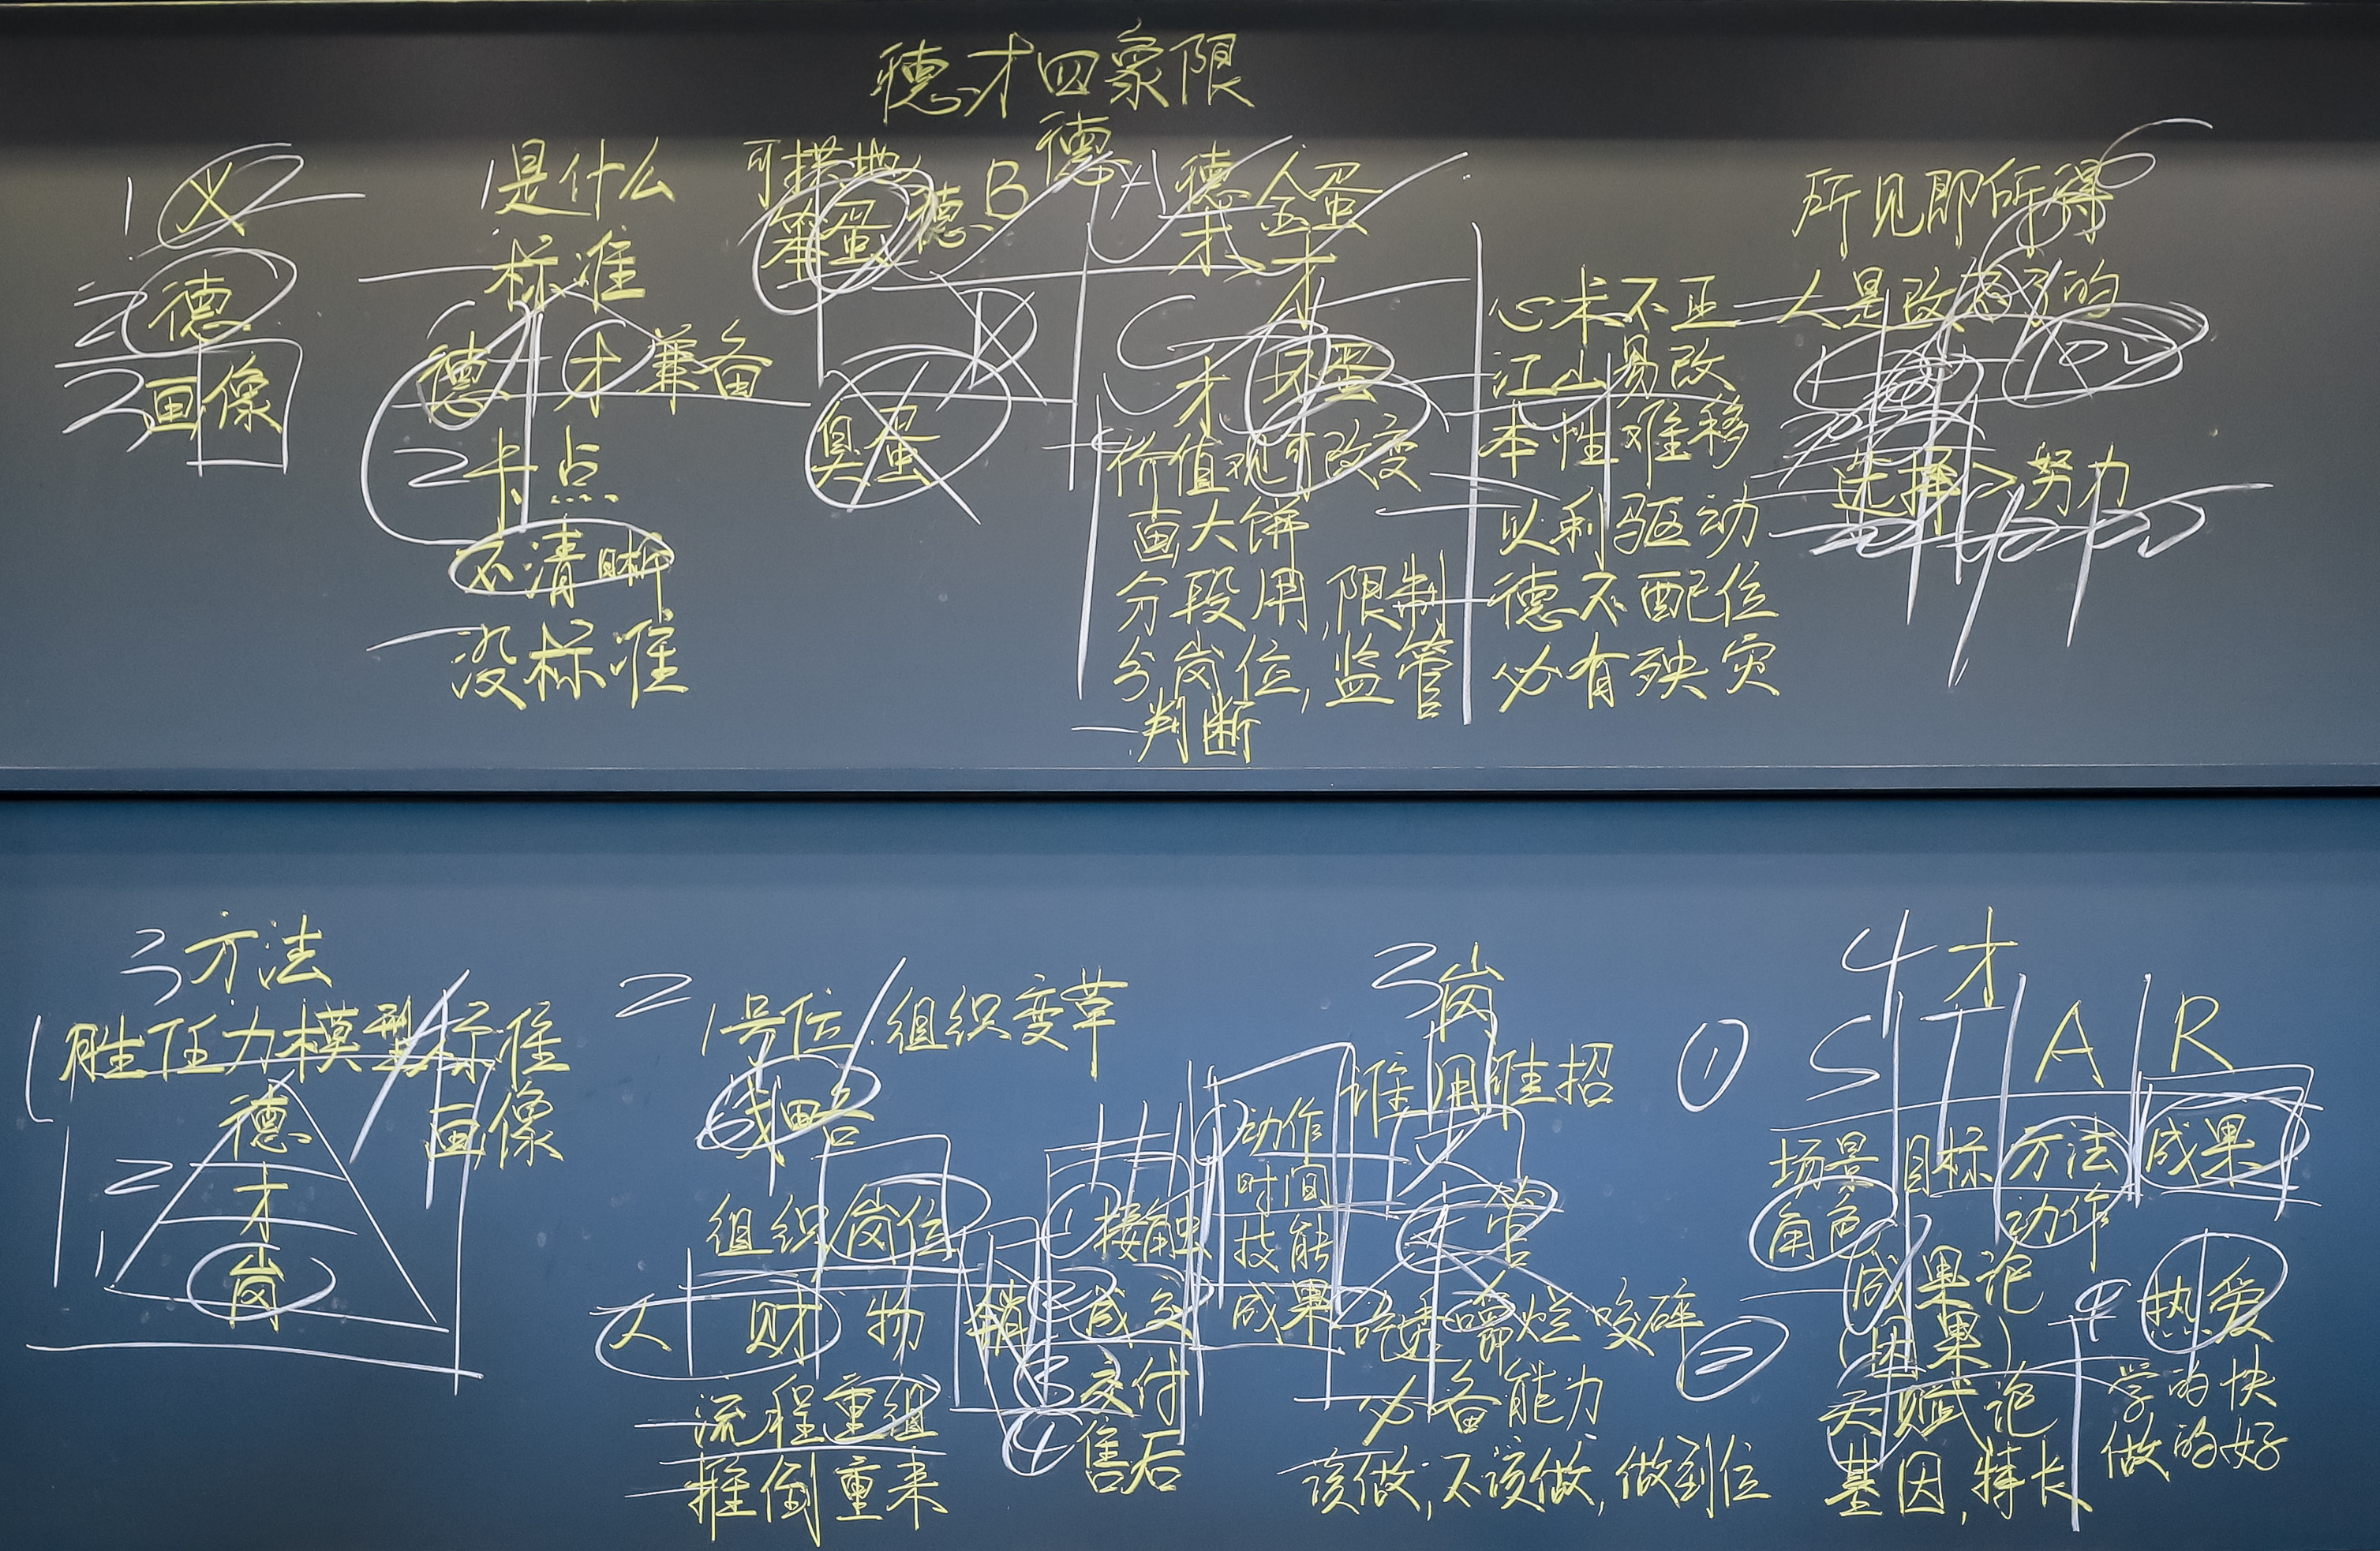 德才四象限
1 义
2 德
3 画像
1是什么
标准
德 才兼备
2卡点
不清晰
没标准
可模地
笨蛋 德 B
德
A 德 金蛋
才
才
C
才 坏蛋
D
臭蛋
价值观可改变
画大饼
分段用,限制
分岗位,监管
一判断
心术不正
江山易改
本性难移
以利驱动
德不配位
必有殃灾
所见即所得
人是改变不了的
选择>努力
3方法
1 胜任力模型/标准
画像
德
2 才
1 岗
2 1号位/组织变革
战略
组织 岗位
人 财 物 销
流程重组
推倒重来
①接触
②成交
③交付
④售后
动作
时间
技能
成果
3岗
谁用谁招
管
吃透嚼烂咬碎
必备能力
该做,不该做,做到位
4 才
① S T A R
场景 目标 方法 成果
角色 动作
② 成果论
(因果)
天赋论
基因,特长
热爱
学的快
做的好